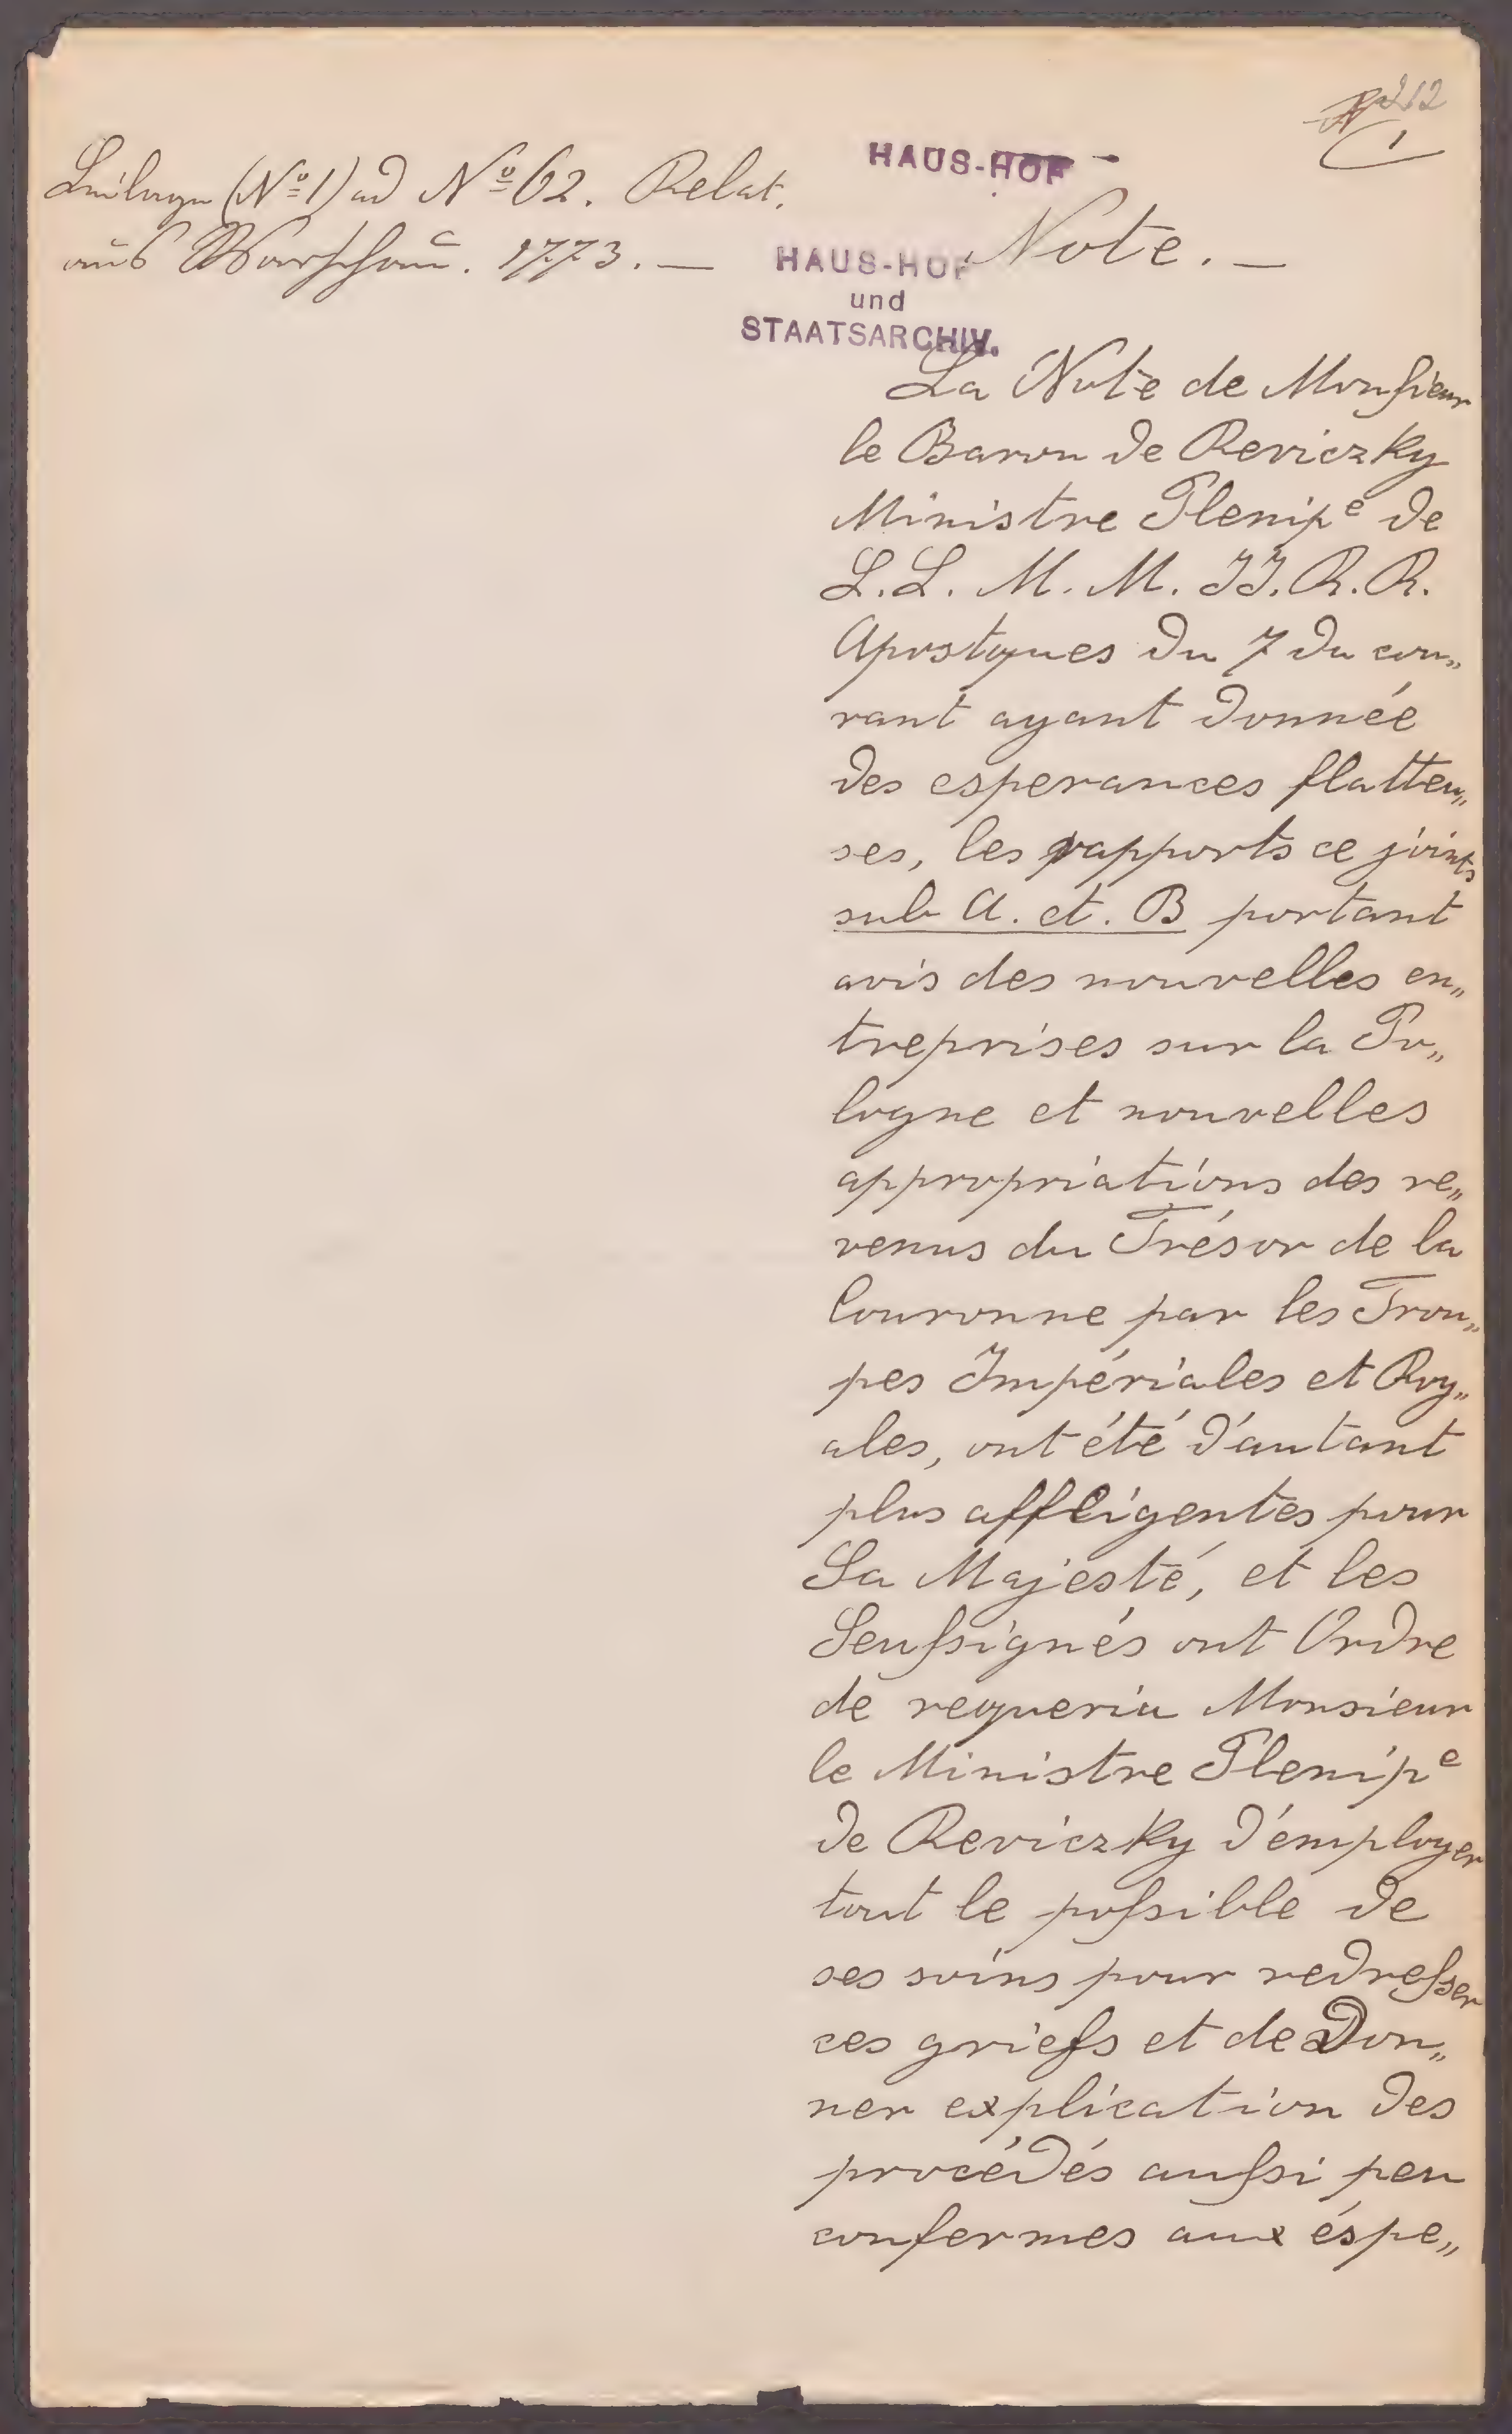 212
1
Beilage (Nº 1) ad Nº 62. Relat.
aus Warschau. 1773. —
HAUS-HOF
HAUS-HOF
und
STAATSARCHIV.
Note. —
La Note de Monsieur
le Baron de Reviczky
Ministre Plenipᵉ de
L.L. M. M. II. R. R.
Apostques du 7 du cou„
rant ayant donnée
des esperances flatteu„
ses, les rapports ce joints
sub A. et. B portant
avis des nouvelles en„
treprises sur la Po„
logne et nouvelles
appropriations des re„
venus du Trésor de la
Couronne par les Trou„
pes Impériales et Roy„
ales, ont été d'autant
plus affligentes pour
Sa Majesté, et les
Seussignés ont Ordre
de requeria Monsieur
le Ministre Plenipᵉ
de Reviczky d'émployer
tout le possible de
ses soins pour redresser
ces griefs et de Don„
ner explication des
procédés aussi peu
confermes aux éspe„